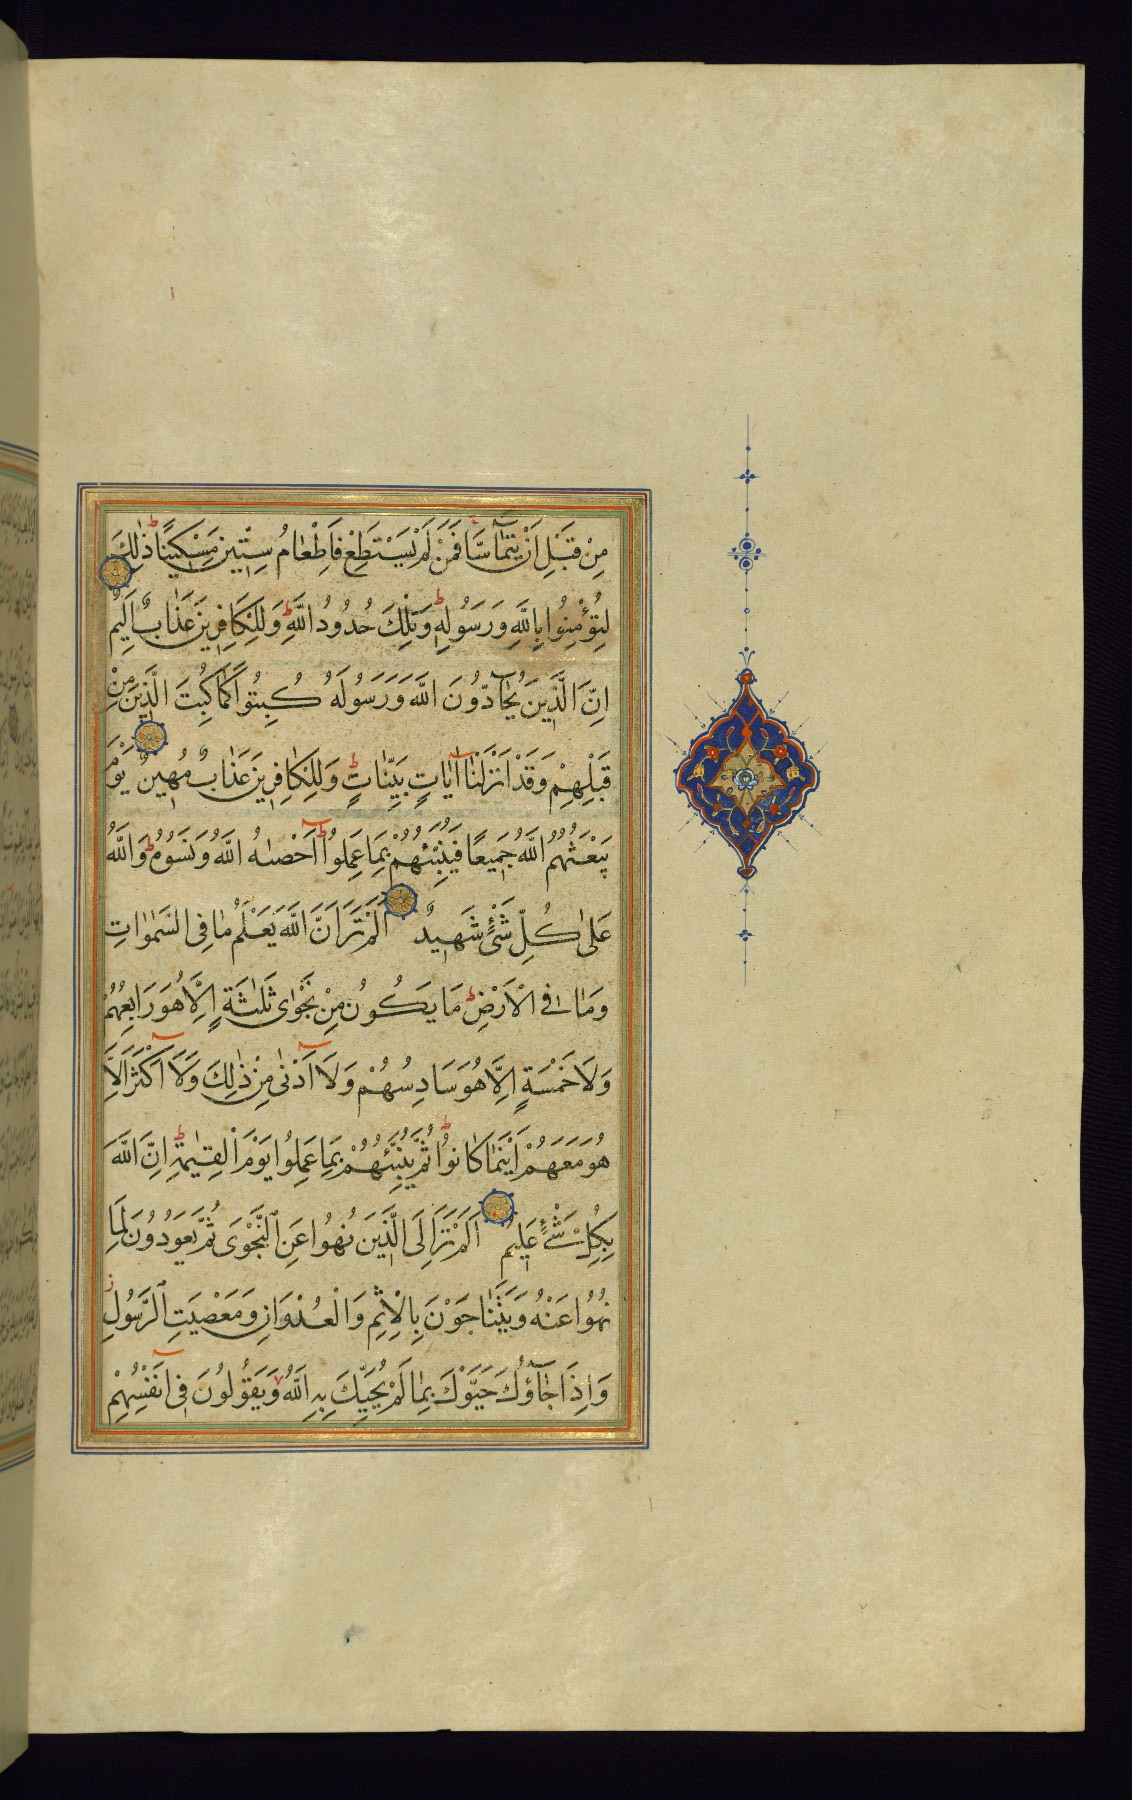 مِنْ قَبْلِ اَنْ يَتَمَآسَّا فَمَنْ لَمْ يَسْتَطِعْ فَاِطْعَامُ سِتِّينَ مِسْكِينًا ط ذٰلِكَ
لِتُؤْمِنُوا بِاللَّهِ وَرَسُولِهِ ط وَتِلْكَ حُدُودُ اللَّهِ ط وَلِلْكَافِرِينَ عَذَابٌ اَلِيمٌ
اِنَّ الَّذِينَ يُحَآدُّونَ اللَّهَ وَرَسُولَهُ كُبِتُوا كَمَا كُبِتَ الَّذِينَ مِنْ
قَبْلِهِمْ وَقَدْ اَنْزَلْنَا اٰيَاتٍ بَيِّنَاتٍ ط وَلِلْكَافِرِينَ عَذَابٌ مُهِينٌ يَوْمَ
يَبْعَثُهُمُ اللَّهُ جَمِيعًا فَيُنَبِّئُهُمْ بِمَا عَمِلُوا ط اَحْصٰىهُ اللَّهُ وَنَسُوهُ ط وَاللَّهُ
عَلٰى كُلِّ شَيْءٍ شَهِيدٌ اَلَمْ تَرَ اَنَّ اللَّهَ يَعْلَمُ مَا فِى السَّمٰوَاتِ
وَمَا فِى الْاَرْضِ ط مَا يَكُونُ مِنْ نَجْوٰى ثَلٰثَةٍ اِلَّا هُوَ رَابِعُهُمْ
وَلَا خَمْسَةٍ اِلَّا هُوَ سَادِسُهُمْ وَلَا اَدْنٰى مِنْ ذٰلِكَ وَلَا اَكْثَرَ اِلَّا
هُوَ مَعَهُمْ اَيْنَمَا كَانُوا ط ثُمَّ يُنَبِّئُهُمْ بِمَا عَمِلُوا يَوْمَ الْقِيٰمَةِ ط اِنَّ اللَّهَ
بِكُلِّ شَيْءٍ عَلِيمٌ اَلَمْ تَرَ اِلَى الَّذِينَ نُهُوا عَنِ النَّجْوَى ثُمَّ يَعُودُونَ لِمَا
نُهُوا عَنْهُ وَيَتَنَاجَوْنَ بِالْاِثْمِ وَالْعُدْوَانِ وَمَعْصِيَتِ الرَّسُولِ ز
وَاِذَا جَآؤُكَ حَيَّوْكَ بِمَا لَمْ يُحَيِّكَ بِهِ اللَّهُ وَيَقُولُونَ فِى اَنْفُسِهِمْ